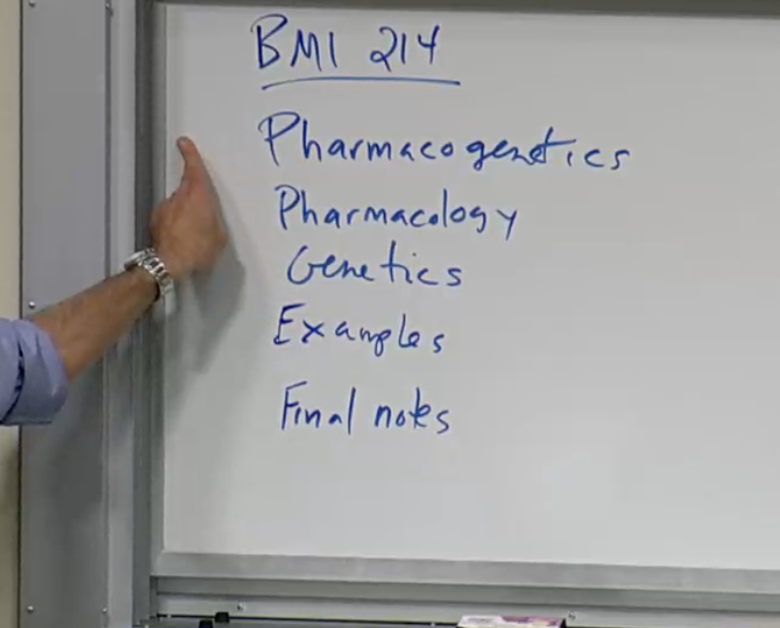 BMI 214
Pharmacogenetics
Pharmacology
Genetics
Examples
Final notes